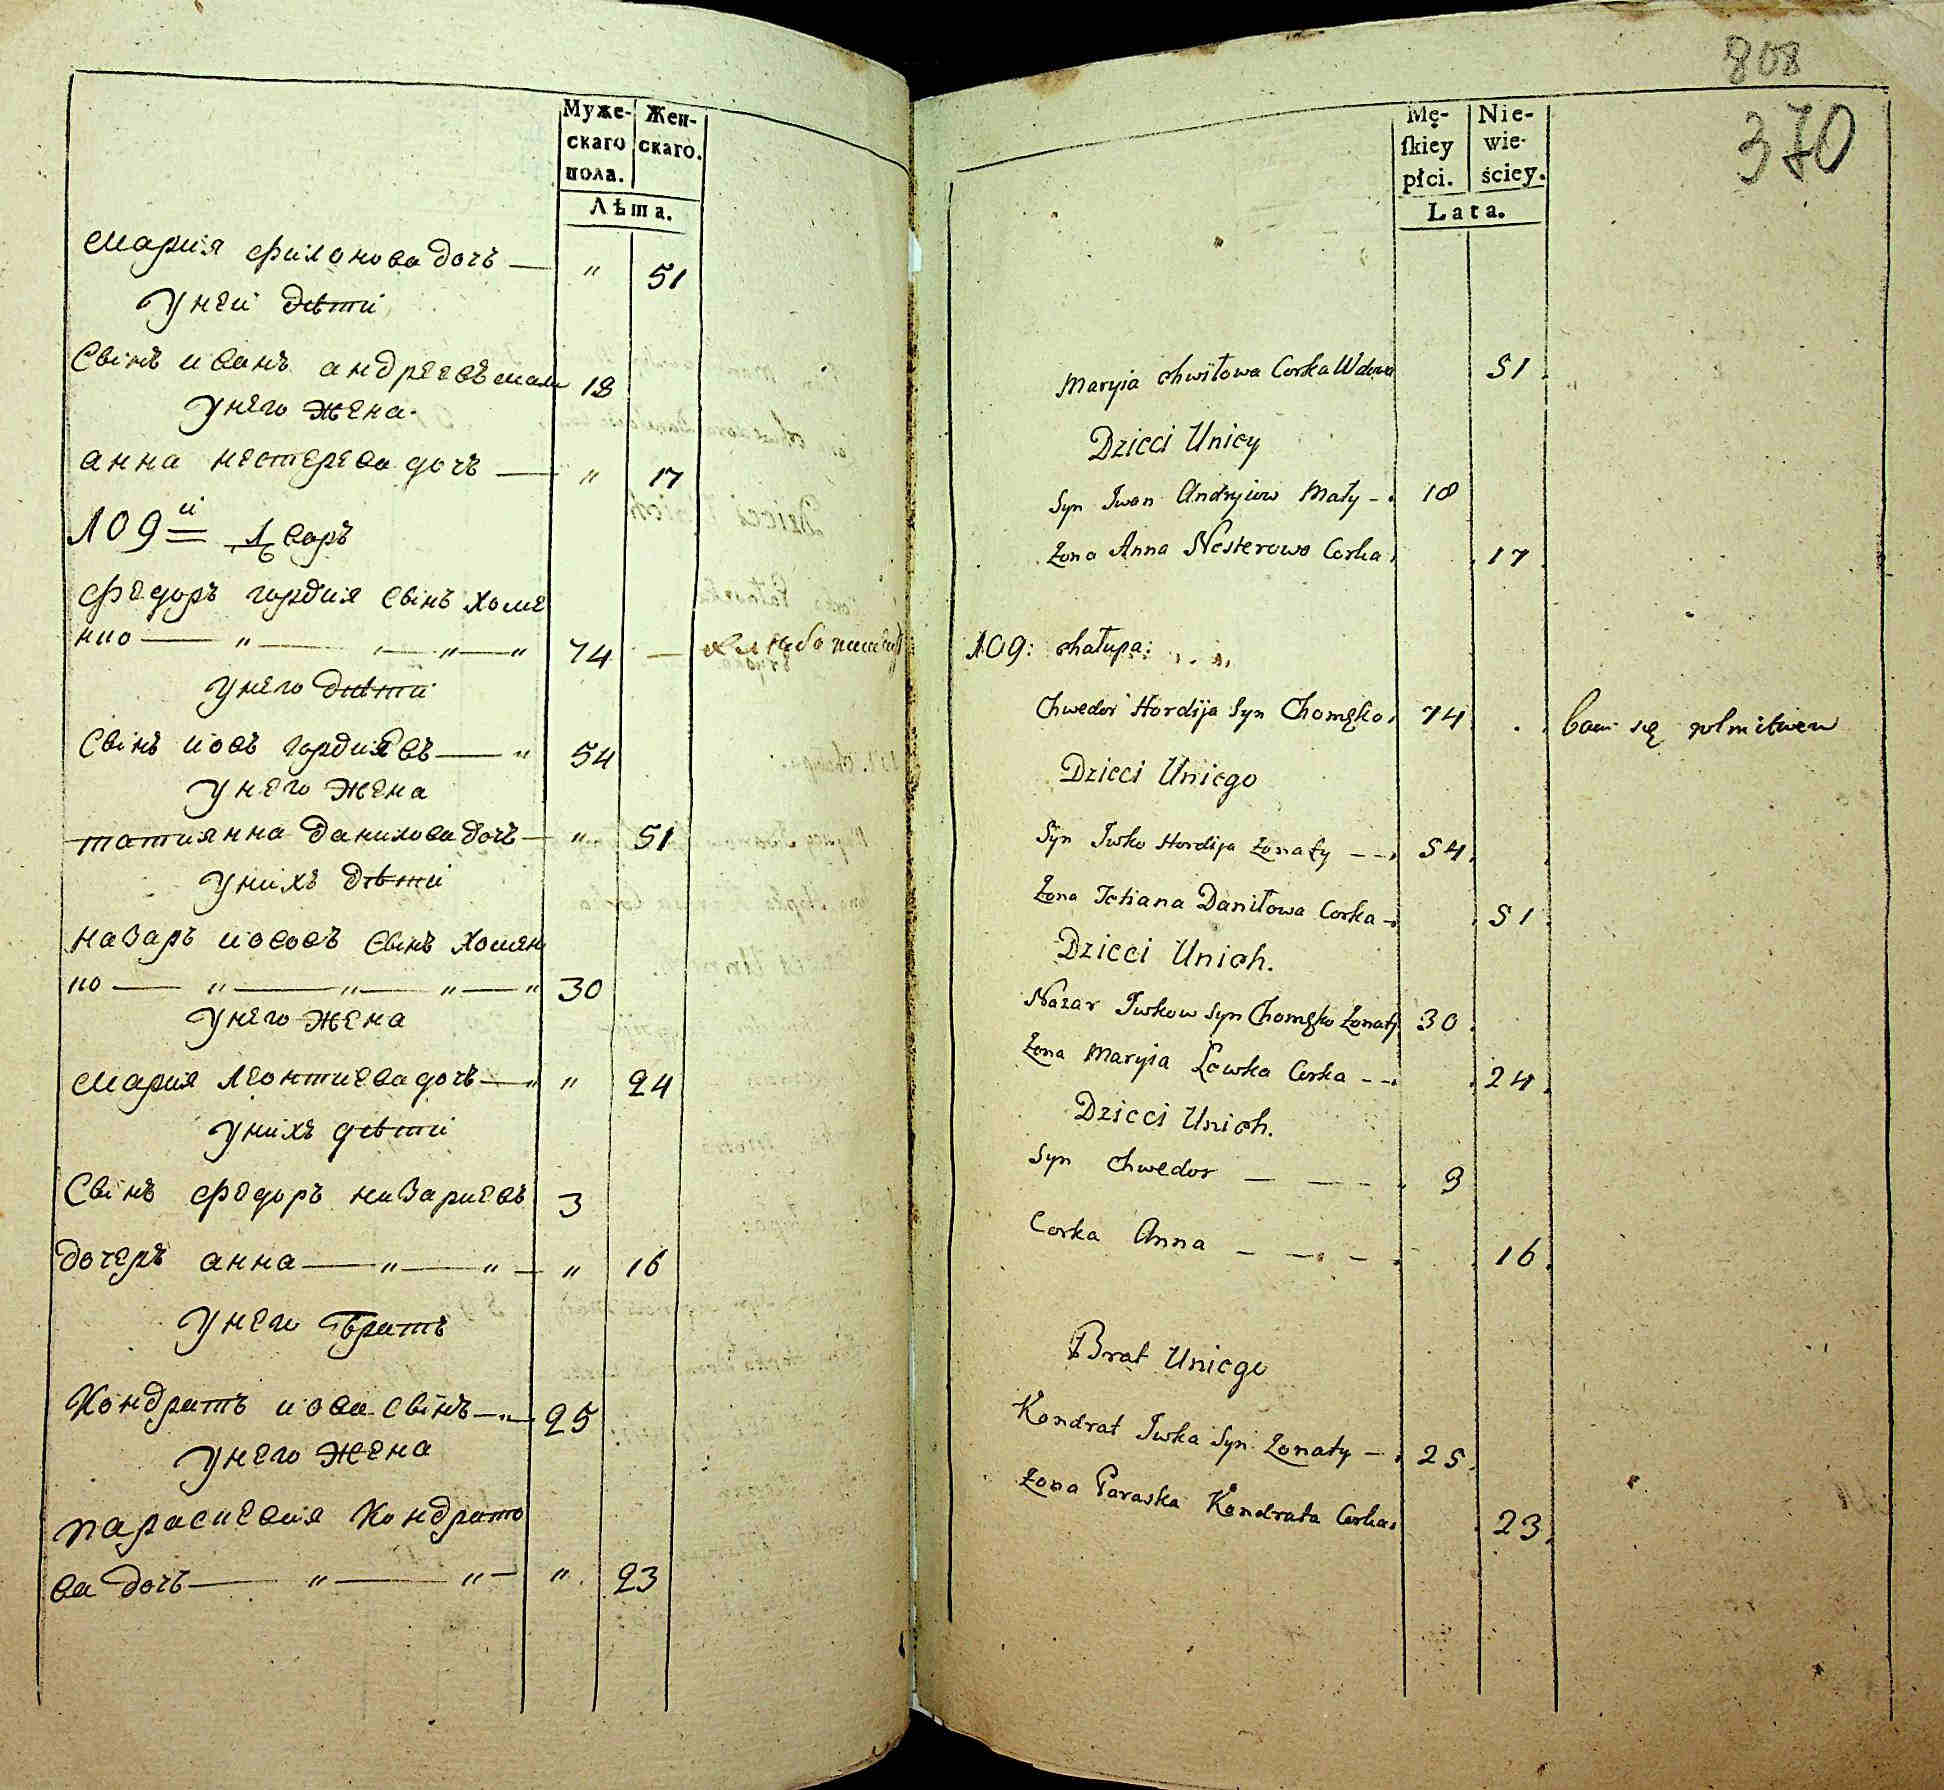 Муже- Жен-
скаго скаго.
пола.
Лѣта.
Мария филонова дочъ — " 51
У неи дѣти
Свінъ иванъ андреевъ мали 18
У него жена.
анна нестерева дочъ — " 17
109й Дворъ
Федоръ гордия Свінъ Хоме
нко — " — " — " 74 —
У него дѣти
Свінъ иовъ гордиевъ — " 54
У него жена
татиянна данилова дочъ — " 51
У нихъ дѣти
назаръ иововъ Свінъ Хомен
ко — " — " — " — " 30
У него жена
Мария леонтиева дочъ — " " 24
У нихъ дѣти
Свінъ федоръ назариевъ 3
дочеръ анна — " — " — " 16
У него братъ
Кондратъ иова Свінъ — " — 25
У него жена
параскевия Кондрато
ва дочъ — " — " — " 23
808
370
Mę- Nie-
skiey wie-
płci. ściey.
Lata.
Maryia Chwiłowa Corka Wdowa 51
Dzieci Uniey
Syn Iwan Andryiow Mały - 18
Żona Anna Nesterowa Corka 17
109: Chałupa:
Chwedor Hordija Syn Chomęko 74 bawi się rolnictwem
Dzieci Uniego
Syn Iwko Hordija Żonaty - - 54
Żona Tatiana Daniłowa Corka - 51
Dzieci Unich.
Nazar Iwkow Syn Chomęko Żonaty 30
Żona Maryia Lewka Corka - - 24
Dzieci Unich.
Syn Chwedor — — 3
Corka Anna — — — 16
Brat Uniego
Kondrat Iwka Syn Żonaty - 25
Żona Paraska Kondrata Corka 23